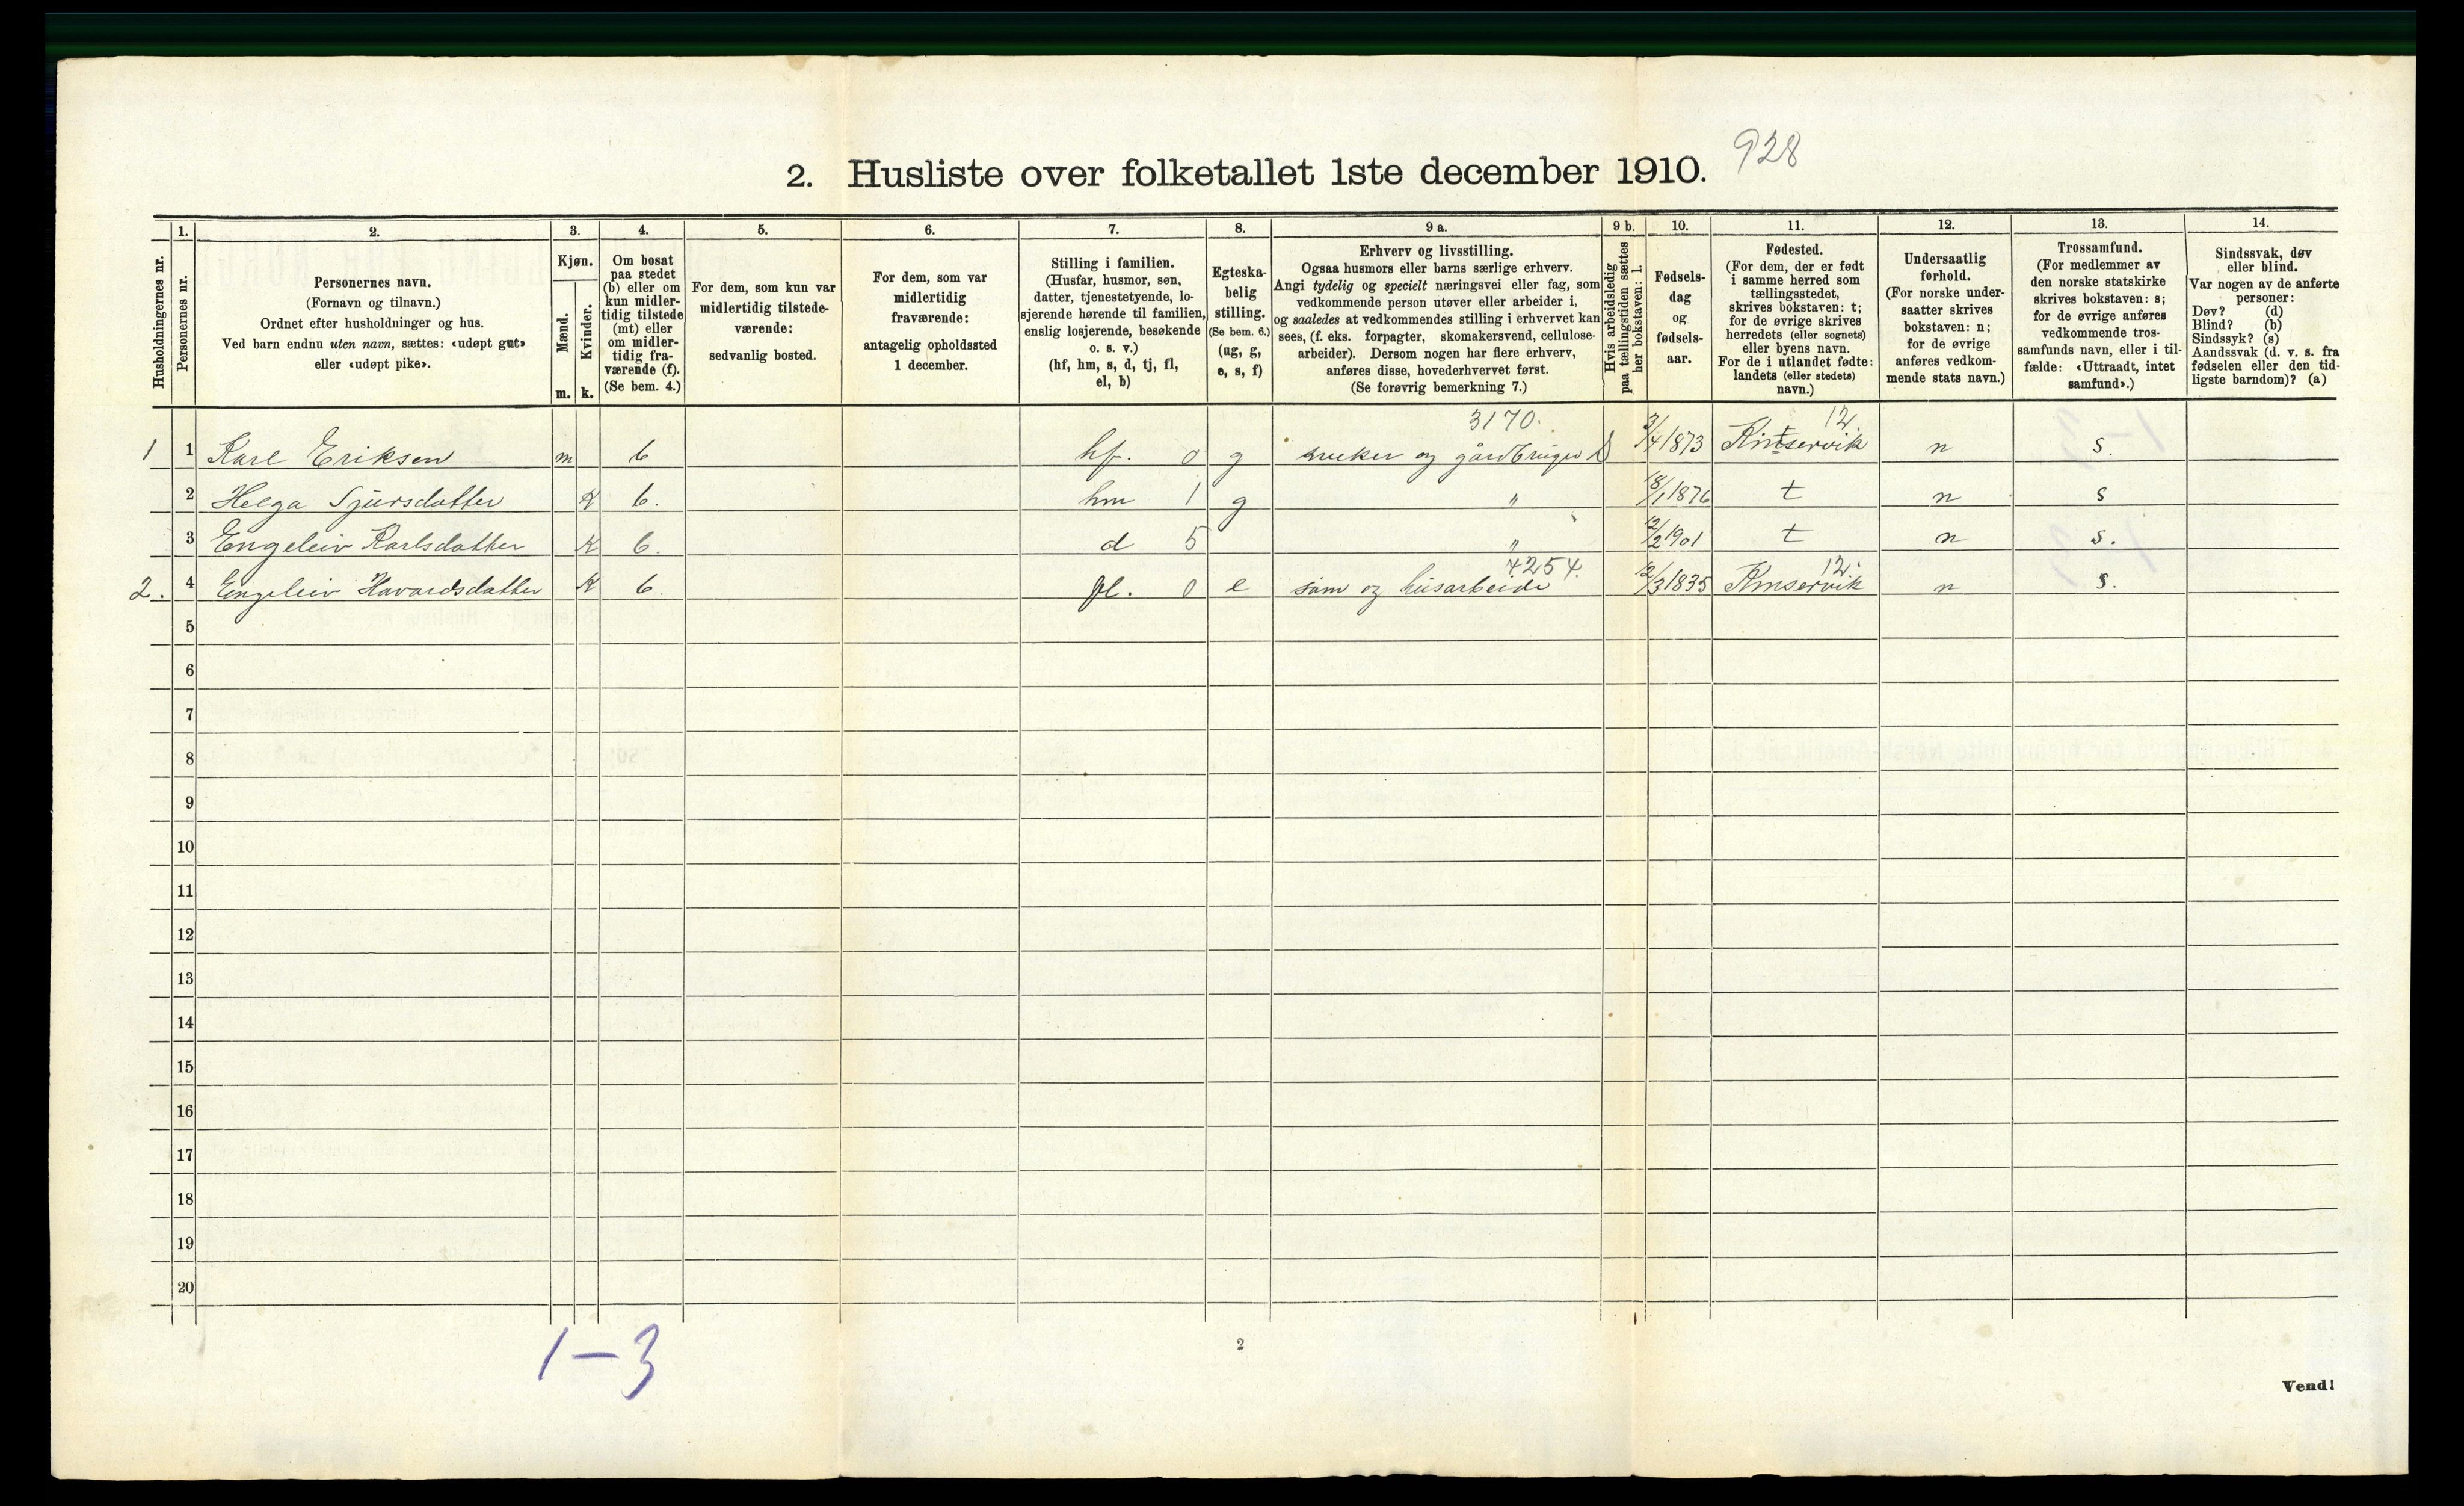 928
2. Husliste over folketallet 1ste december 1910.
Husholdningernes nr.
1.
Personernes nr.
2.
Personernes navn.
(Fornavn og tilnavn.)
Ordnet efter husholdninger og hus.
Ved barn endnu uten navn, sættes: «udøpt gut»
eller «udøpt pike».
3.
Kjøn.
Mænd.
Kvinder.
m. k.
4.
Om bosat
paa stedet
(b) eller om
kun midler-
tidig tilstede
(mt) eller
om midler-
tidig fra-
værende (f).
(Se bem. 4.)
5.
For dem, som kun var
midlertidig tilstede-
værende:
sedvanlig bosted.
6.
For dem, som var
midlertidig
fraværende:
antagelig opholdssted
1 december.
7.
Stilling i familien.
(Husfar, husmor, søn,
datter, tjenestetyende, lo-
sjerende hørende til familien,
enslig losjerende, besøkende
o. s. v.)
(hf, hm, s, d, tj, fl,
el, b)
8.
Egteska-
belig
stilling.
(Se bem. 6.)
(ug, g,
e, s, f)
9 a.
Erhverv og livsstilling.
Ogsaa husmors eller barns særlige erhverv.
Angi tydelig og specielt næringsvei eller fag, som
vedkommende person utøver eller arbeider i,
og saaledes at vedkommendes stilling i erhvervet kan
sees, (f. eks. forpagter, skomakersvend, cellulose-
arbeider). Dersom nogen har flere erhverv,
anføres disse, hovederhvervet først.
(Se forøvrig bemerkning 7.)
9 b.
Hvis arbeidsledig
paa tællingstiden sættes
her bokstaven: l.
10.
Fødsels-
dag
og
fødsels-
aar.
11.
Fødested.
(For dem, der er født
i samme herred som
tællingsstedet,
skrives bokstaven: t;
for de øvrige skrives
herredets (eller sognets)
eller byens navn.
For de i utlandet fødte:
landets (eller stedets)
navn.)
12.
Undersaatlig
forhold.
(For norske under-
saatter skrives
bokstaven: n;
for de øvrige
anføres vedkom-
mende stats navn.)
13.
Trossamfund.
(For medlemmer av
den norske statskirke
skrives bokstaven: s;
for de øvrige anføres
vedkommende tros-
samfunds navn, eller i til-
fælde: «Uttraadt, intet
samfund».)
14.
Sindssvak, døv
eller blind.
Var nogen av de anførte
personer:
Døv? (d)
Blind? (b)
Sindssyk? (s)
Aandssvak (d. v. s. fra
fødselen eller den tid-
ligste barndom)? (a)
3170. 12.
1 1 Karl Eriksen m b hf. 0 g og gårdbruger 3/4 1873 Kinservik n s.
2 Helga Sjursdatter K b. hm 1 g " 18/1 1876 t n s
3 Engeleiv Karlsdatter K b. d 5 " 12/2 1901 t n s.
4254. 12.
2. 4 Engeleiv Havardsdatter K b. fl. 0 e søm og husarbeide 12/3 1835 Kinservik n s.
5
6
7
8
9
10
11
12
13
14
15
16
17
18
19
20
1–3
2
Vend!